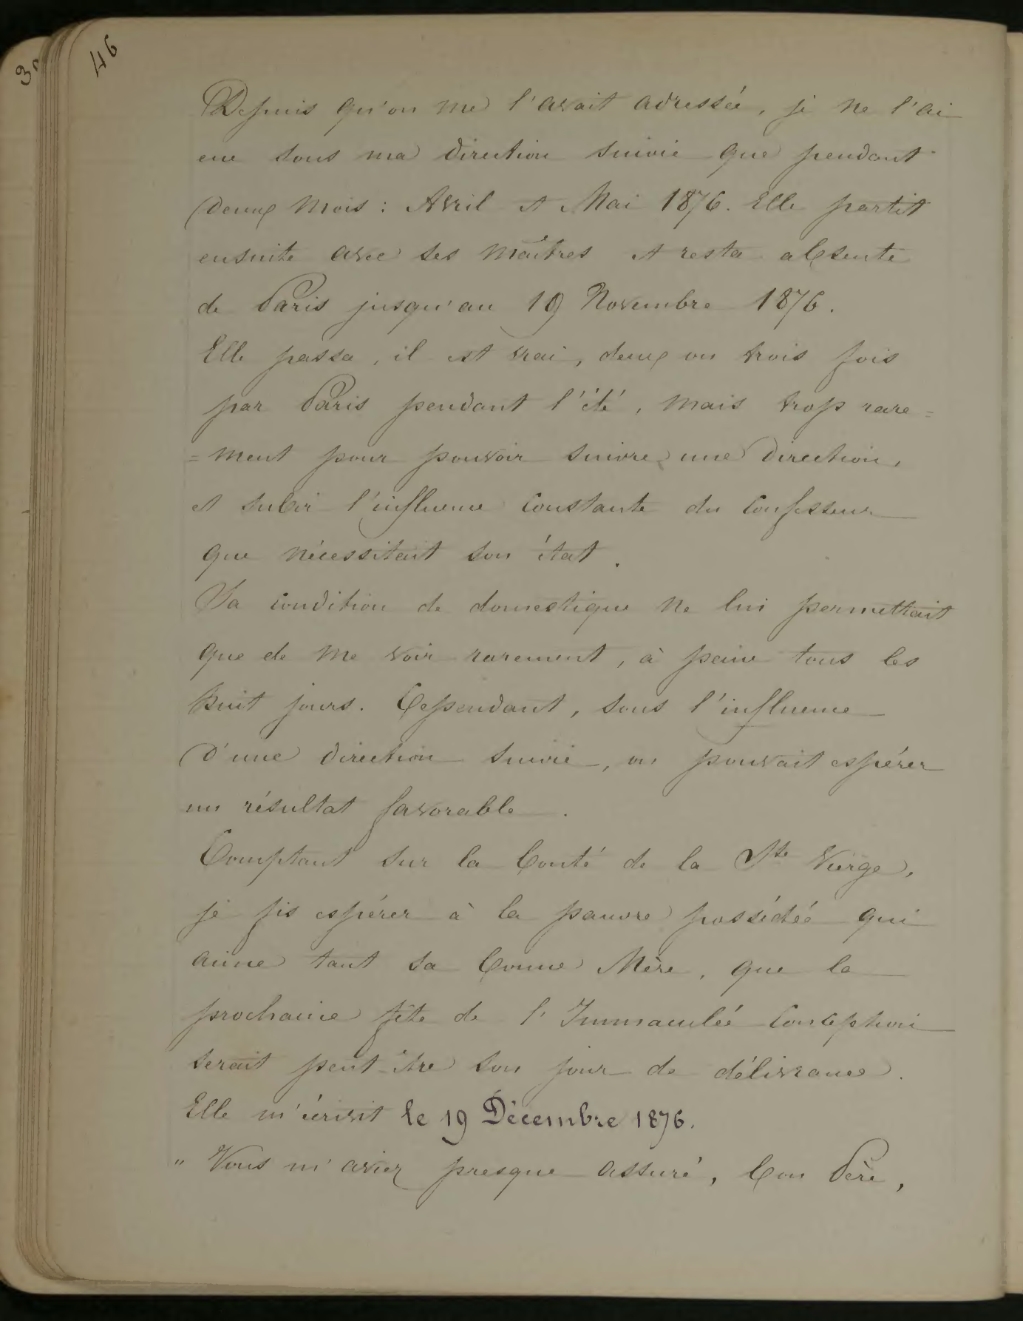 46
Depuis qu'on me l'avait adressée, je ne l'ai
eue sous ma direction suivie que pendant
deux mois : Avril et Mai 1876. Elle partit
ensuite avec ses maîtres et resta absente
de Paris jusqu'au 19 Novembre 1876.
Elle passa, il est vrai, deux ou trois fois
par Paris pendant l'été, mais trop rare=
=ment pour pouvoir suivre une direction,
et subir l'influence constante du confesseur
que nécessitait son état.
Sa condition de domestique ne lui permettait
que de me voir rarement, à peine tous les
huit jours. Cependant, sous l'influence
d'une direction suivie, on pouvait espérer
un résultat favorable.
Comptant sur la bonté de la Ste Vierge,
je fis espérer à la pauvre possédée qui
aime tant sa bonne Mère, que la
prochaine fête de l'Immaculée Conception
serait peut-être son jour de délivrance.
Elle m'écrivit le 19 Décembre 1876.
" Vous m'aviez presque assuré, bon Père,